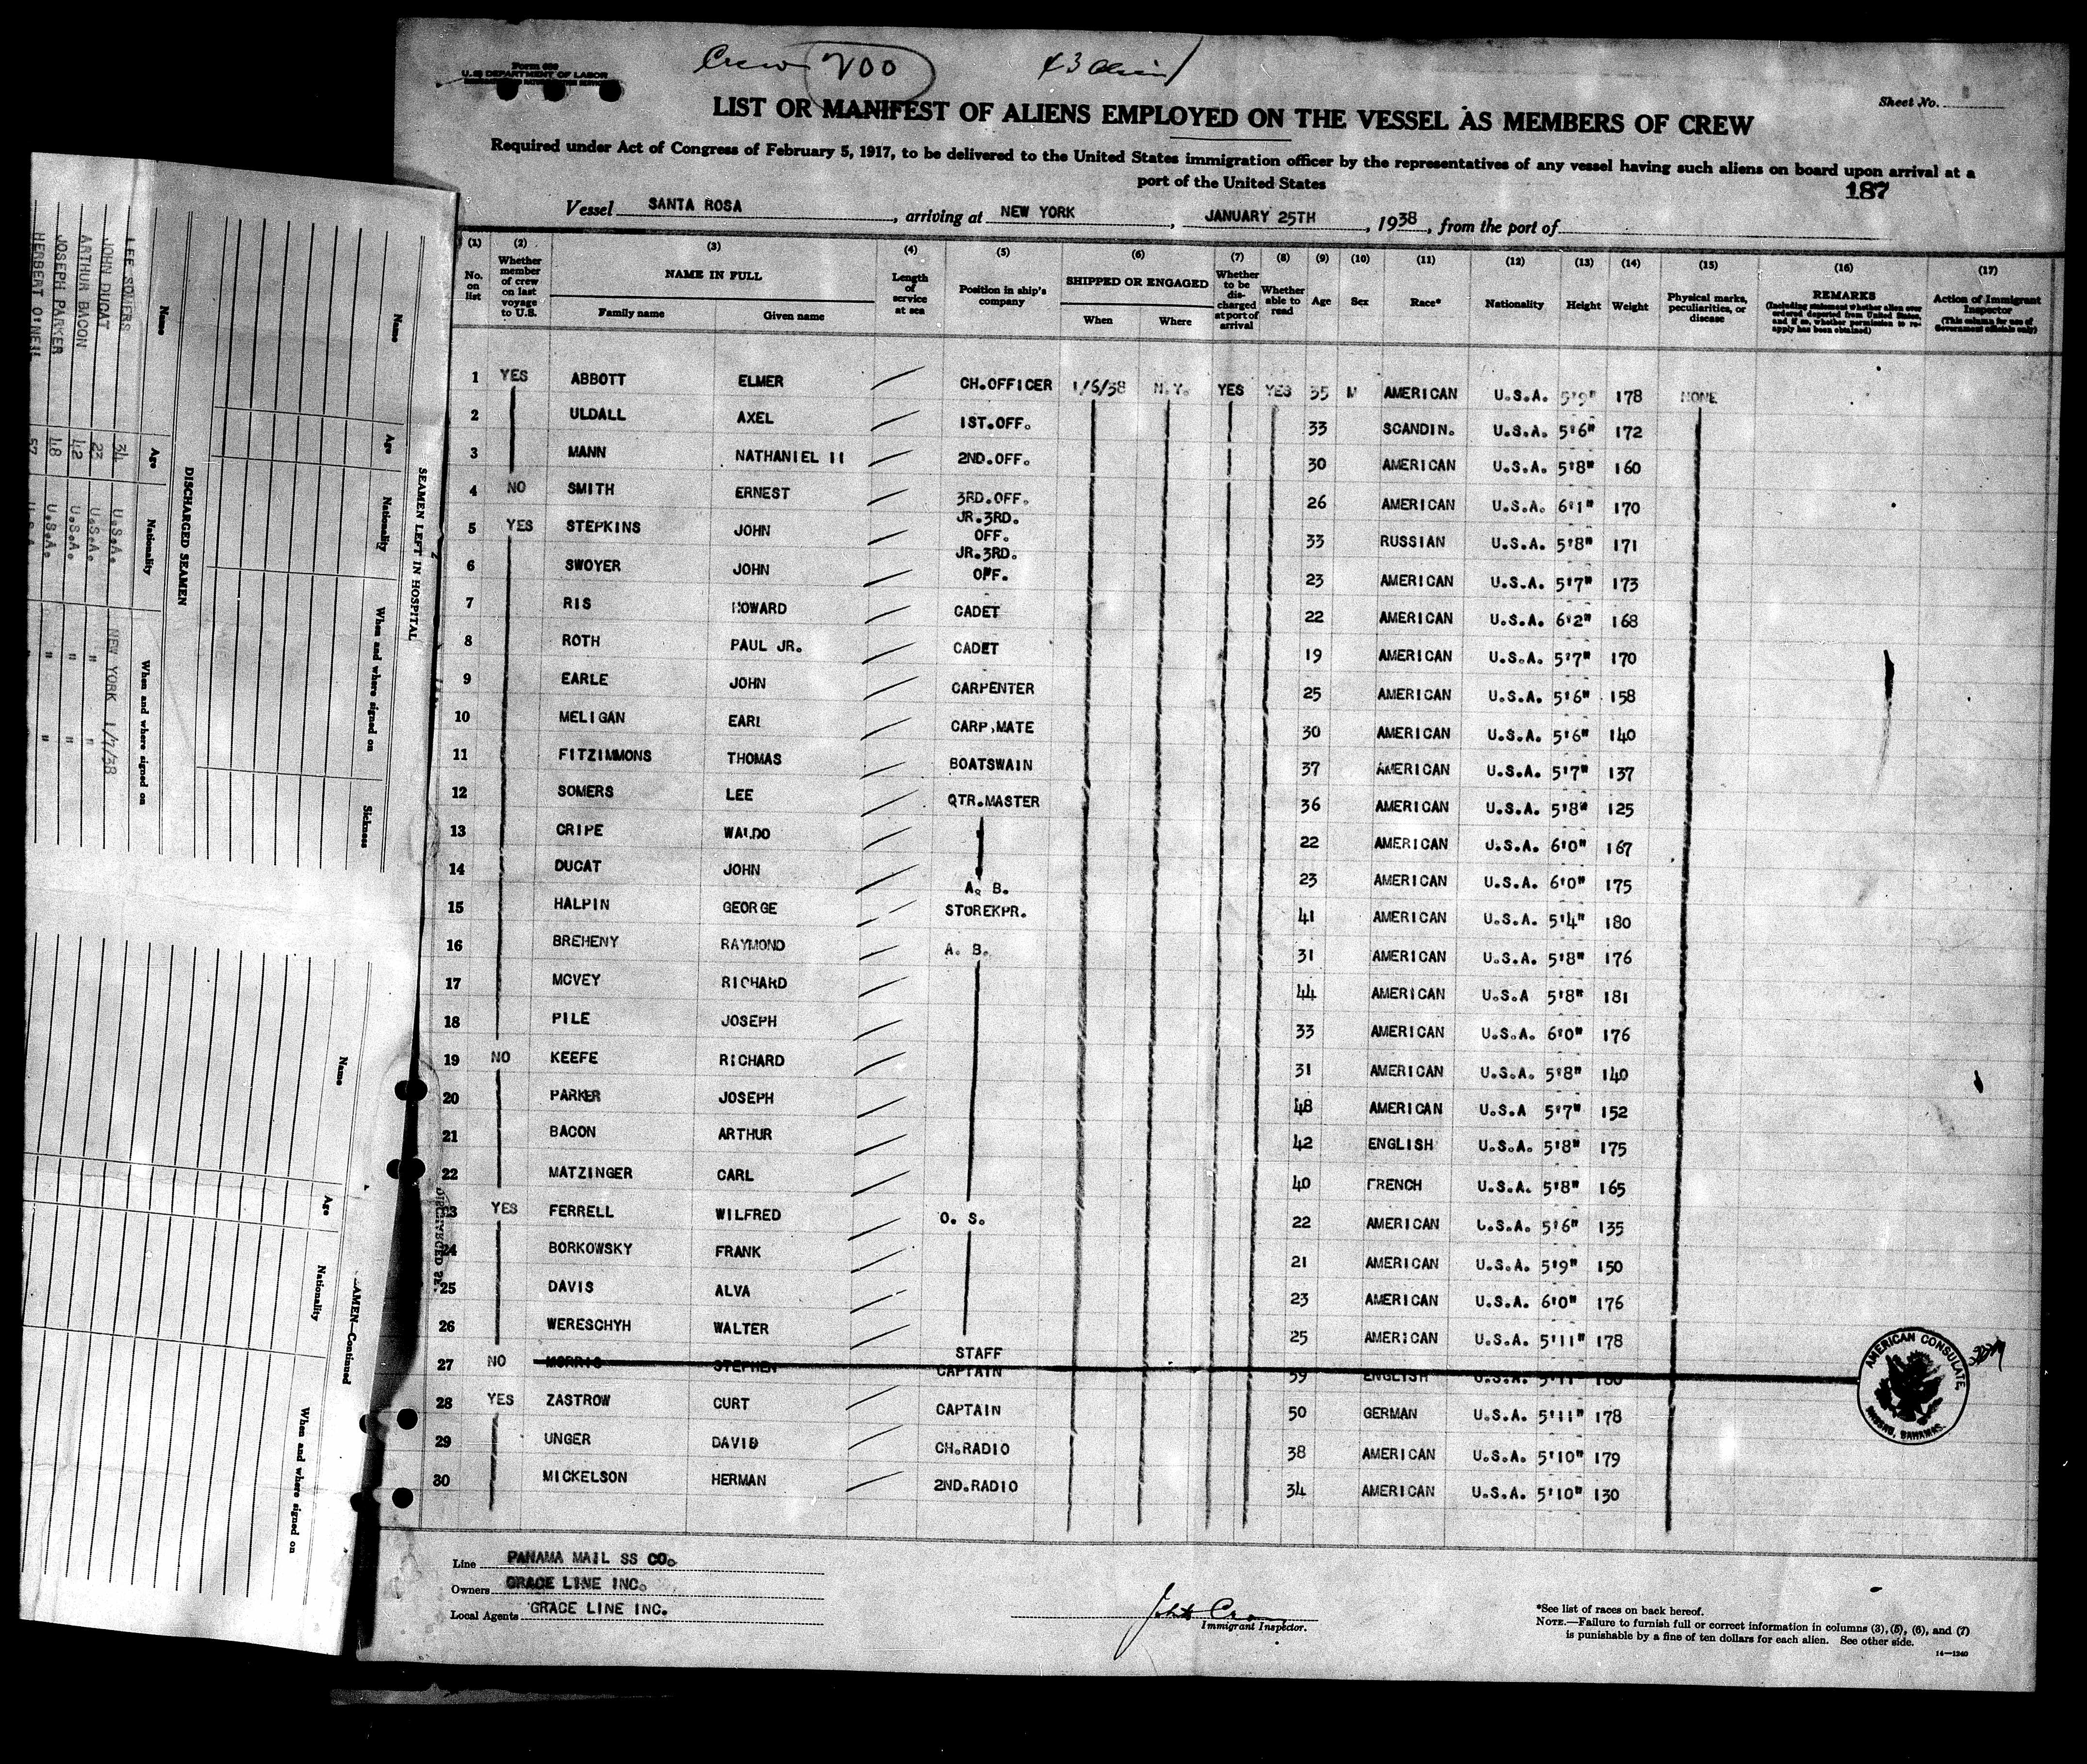 Form 680
U. S. DEPARTMENT OF LABOR
Crew 200
43 Alien
Sheet No.
LIST OR MANIFEST OF ALIENS EMPLOYED ON THE VESSEL AS MEMBERS OF CREW
Required under Act of Congress of February 5, 1917, to be delivered to the United States immigration officer by the representatives of any vessel having such aliens on board upon arrival at a
port of the United States
187
Vessel SANTA ROSA, arriving at NEW YORK, JANUARY 25TH, 1938, from the port of
(1) (2) (3) (4) (5) (6) (7) (8) (9) (10) (11) (12) (13) (14) (15) (16) (17)
No. on list
Whether member of crew on last voyage to U.S.
NAME IN FULL
Family name
Given name
Length of service at sea
Position in ship's company
SHIPPED OR ENGAGED
When
Where
Whether to be discharged at port of arrival
Whether able to read
Age
Sex
Race*
Nationality
Height
Weight
Physical marks, peculiarities, or disease
REMARKS
(Including statement whether alien ever ordered deported from United States, and if so, whether permission to reapply has been obtained)
Action of Immigrant Inspector
(This column for use of Government officials only)
1 YES ABBOTT ELMER CH.OFFICER 1/6/38 N.Y. YES YES 35 M AMERICAN U.S.A. 5'9" 178 NONE
2 ULDALL AXEL 1ST.OFF. 33 SCANDIN. U.S.A. 5'6" 172
3 MANN NATHANIEL II 2ND.OFF. 30 AMERICAN U.S.A. 5'8" 160
4 NO SMITH ERNEST 3RD.OFF. 26 AMERICAN U.S.A. 6'1" 170
5 YES STEPKINS JOHN JR.3RD. OFF. 33 RUSSIAN U.S.A. 5'8" 171
6 SWOYER JOHN JR.3RD. OFF. 23 AMERICAN U.S.A. 5'7" 173
7 RIS HOWARD CADET 22 AMERICAN U.S.A. 6'2" 168
8 ROTH PAUL JR. CADET 19 AMERICAN U.S.A. 5'7" 170
9 EARLE JOHN CARPENTER 25 AMERICAN U.S.A. 5'6" 158
10 MELIGAN EARL CARP.MATE 30 AMERICAN U.S.A. 5'6" 140
11 FITZIMMONS THOMAS BOATSWAIN 37 AMERICAN U.S.A. 5'7" 137
12 SOMERS LEE QTR.MASTER 36 AMERICAN U.S.A. 5'8" 125
13 CRIPE WALDO 22 AMERICAN U.S.A. 6'0" 167
14 DUCAT JOHN A. B. 23 AMERICAN U.S.A. 6'0" 175
15 HALPIN GEORGE STOREKPR. 41 AMERICAN U.S.A. 5'4" 180
16 BREHENY RAYMOND A. B. 31 AMERICAN U.S.A. 5'8" 176
17 MCVEY RICHARD 44 AMERICAN U.S.A 5'8" 181
18 PILE JOSEPH 33 AMERICAN U.S.A. 6'0" 176
19 NO KEEFE RICHARD 31 AMERICAN U.S.A. 5'8" 140
20 PARKER JOSEPH 48 AMERICAN U.S.A 5'7" 152
21 BACON ARTHUR 42 ENGLISH U.S.A. 5'8" 175
22 MATZINGER CARL 40 FRENCH U.S.A. 5'8" 165
23 YES FERRELL WILFRED O. S. 22 AMERICAN U.S.A. 5'6" 135
24 BORKOWSKY FRANK 21 AMERICAN U.S.A. 5'9" 150
25 DAVIS ALVA 23 AMERICAN U.S.A. 6'0" 176
26 WERESCHYH WALTER 25 AMERICAN U.S.A. 5'11" 178
27 NO MORRIS STEPHEN STAFF CAPTAIN 59 ENGLISH U.S.A. 5'11"
28 YES ZASTROW CURT CAPTAIN 50 GERMAN U.S.A. 5'11" 178
29 UNGER DAVID CH.RADIO 38 AMERICAN U.S.A. 5'10" 179
30 MICKELSON HERMAN 2ND.RADIO 34 AMERICAN U.S.A. 5'10" 130
AMERICAN CONSULATE,
NASSAU, BAHAMAS.
Line PANAMA MAIL SS CO.
Owners GRACE LINE INC.
Local Agents GRACE LINE INC.
Immigrant Inspector.
*See list of races on back hereof.
NOTE.—Failure to furnish full or correct information in columns (3), (5), (6), and (7)
is punishable by a fine of ten dollars for each alien. See other side.
14—1240
SEAMEN LEFT IN HOSPITAL
Name Age Nationality When and where signed on Sickness
DISCHARGED SEAMEN
Name Age Nationality When and where signed on
LEE SOMERS 34 U.S.A. NEW YORK 1/7/38
JOHN DUCAT 23 U.S.A. " "
ARTHUR BACON 42 U.S.A. " "
JOSEPH PARKER 48 U.S.A. " "
HERBERT O'NEIL 57 U.S.A.
AMEN—Continued
Name Age Nationality When and where signed on